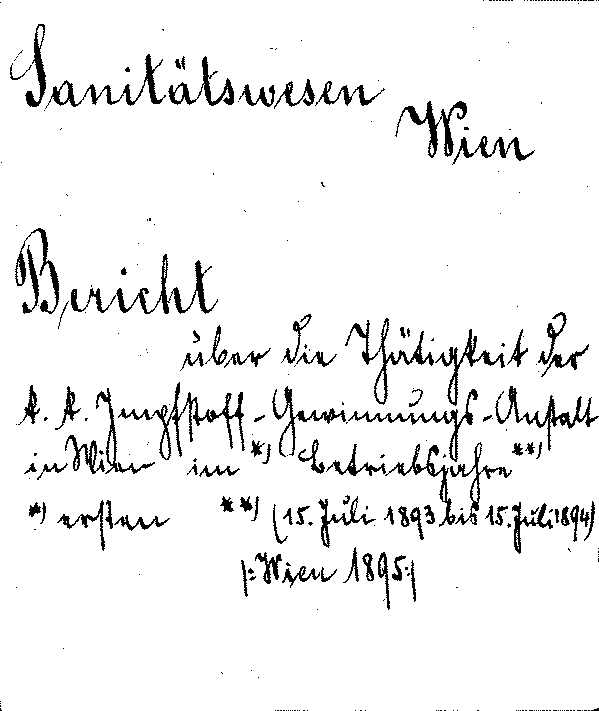 Sanitätswesen
Wien
Bericht
über die Thätigkeit der
k. k. Impfstoff-Gewinnungs-Anstalt
in Wien im *) Betriebsjahre **)
*) ersten **) (15. Juli 1893 bis 15. Juli 1894)
|: Wien 1895 :|